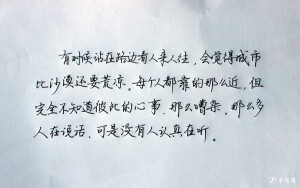 有时候站在路边看人来人往，会觉得城市
比沙漠还要荒凉。每个人都靠的那么近，但
完全不知道彼此的心事，那么嘈杂，那么多
人在说话，可是没有人认真在听。